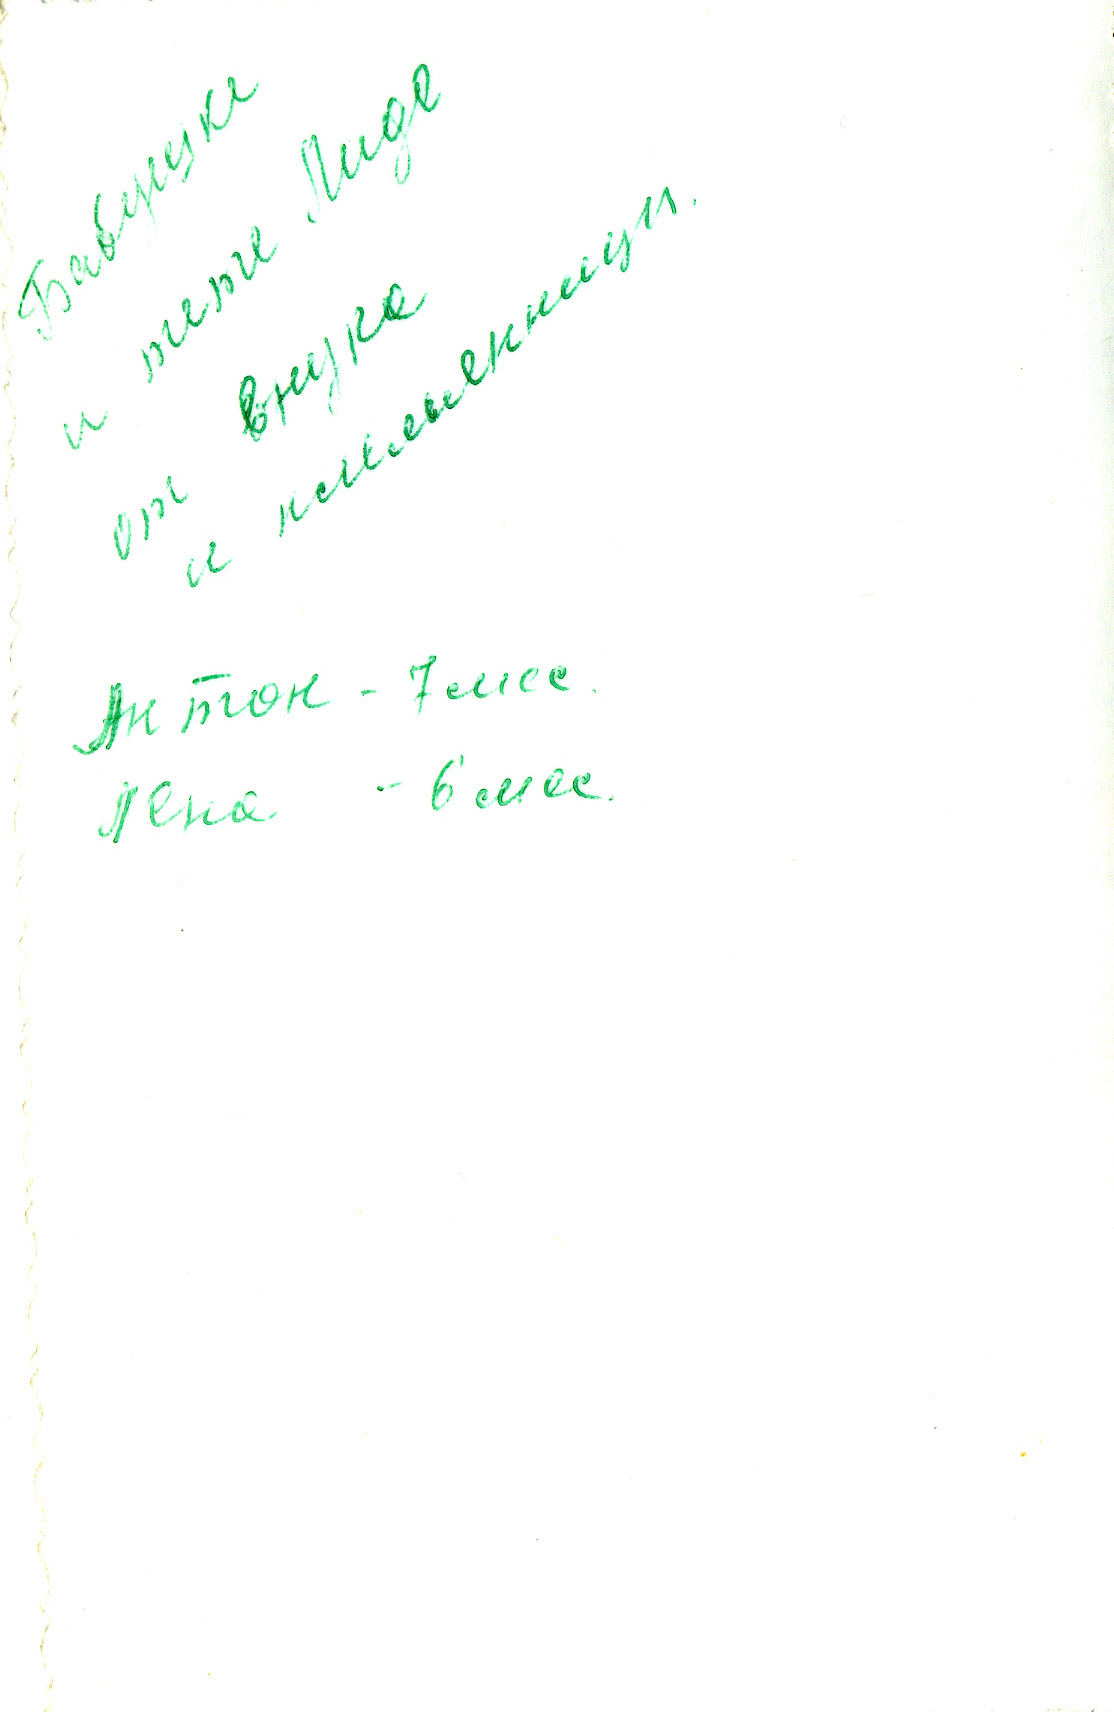 Бабушке
и тете Лиде
от внука
и племянницы.
Антон - 7 мес.
Лена - 6 мес.